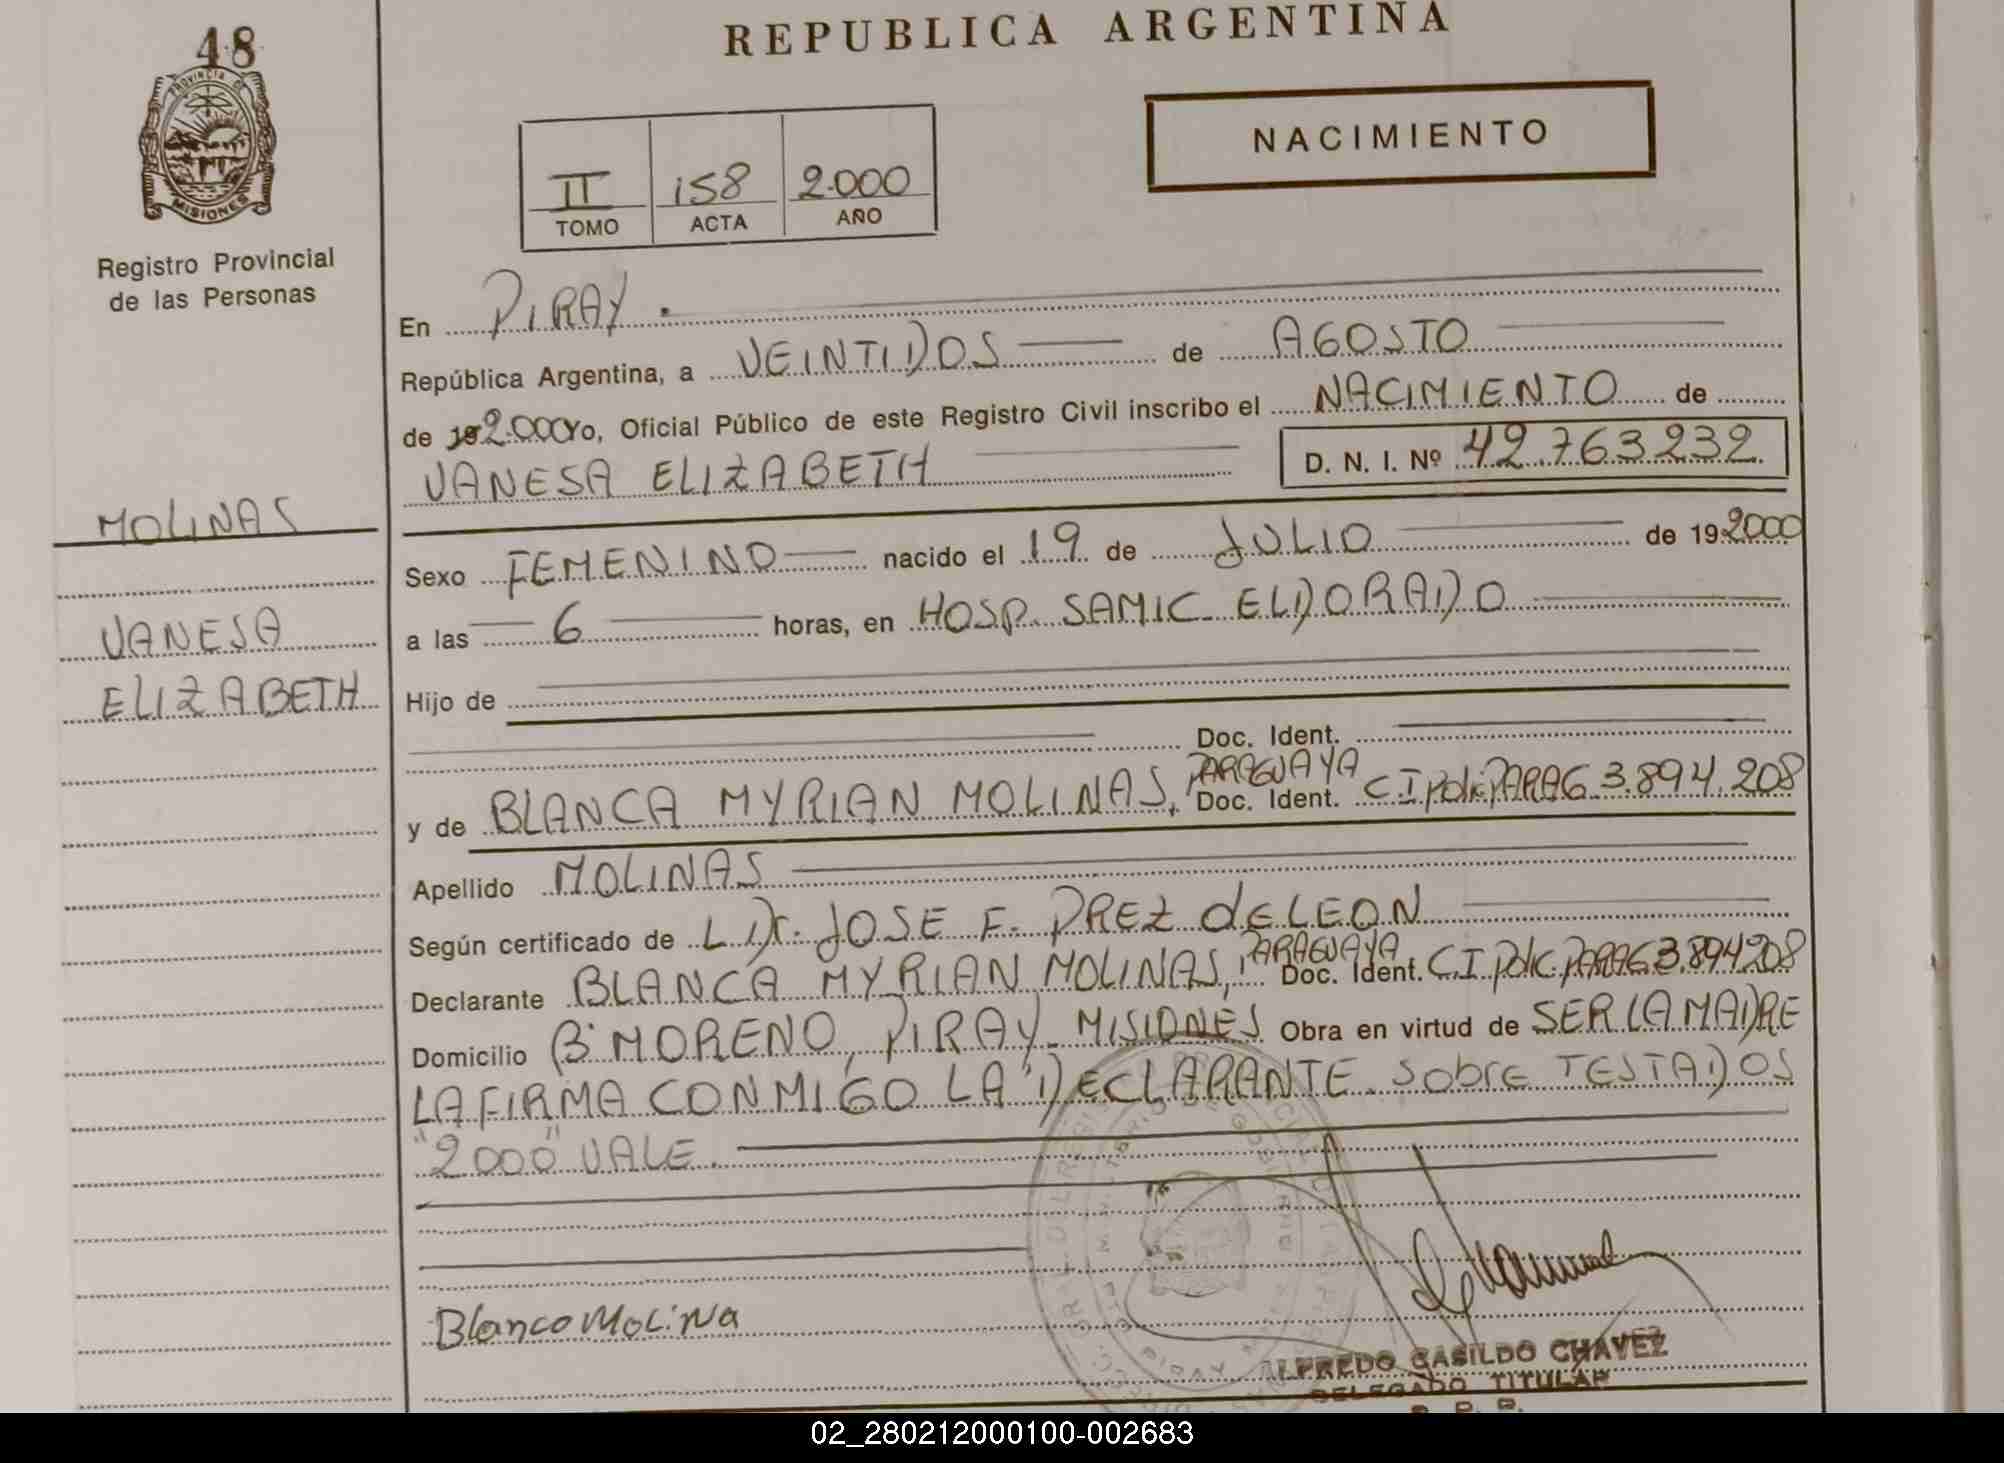 48
PROVINCIA DE
MISIONES
Registro Provincial
de las Personas
MOLINAS
VANESA
ELIZABETH
REPUBLICA ARGENTINA
II 158 2.000
TOMO ACTA AÑO
NACIMIENTO
En PIRAY.
República Argentina, a VEINTIDOS de AGOSTO
de 19 2.000 Yo, Oficial Público de este Registro Civil inscribo el NACIMIENTO de
VANESA ELIZABETH D. N. I. Nº 42.763232
Sexo FEMENINO nacido el 19 de JULIO de 19 2000
a las 6 horas, en HOSP. SAMIC ELDORADO
Hijo de
Doc. Ident.
y de BLANCA MYRIAN MOLINAS, PARAGUAYA Doc. Ident. C.I. Polic. PARAG 3.894.208
Apellido MOLINAS
Según certificado de L Dr. JOSE F. PREZ dELEON
Declarante BLANCA MYRIAN MOLINAS, PARAGUAYA Doc. Ident. C.I. Polic. PARAG 3.894208
Domicilio Bº MORENO, PIRAY. MISIONES Obra en virtud de SER LA MADRE
LA FIRMA CONMIGO LA DECLARANTE. SobrE TESTADOS
"2000" VALE.
Blanco MoLiNa
ALFREDO CASILDO CHAVEZ
DELEGADO TITULAR
R. P. P.
02_280212000100-002683